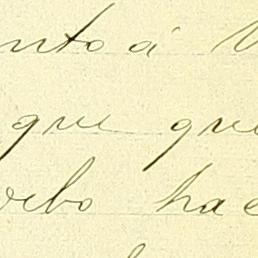 nto á
que que
erbo hac